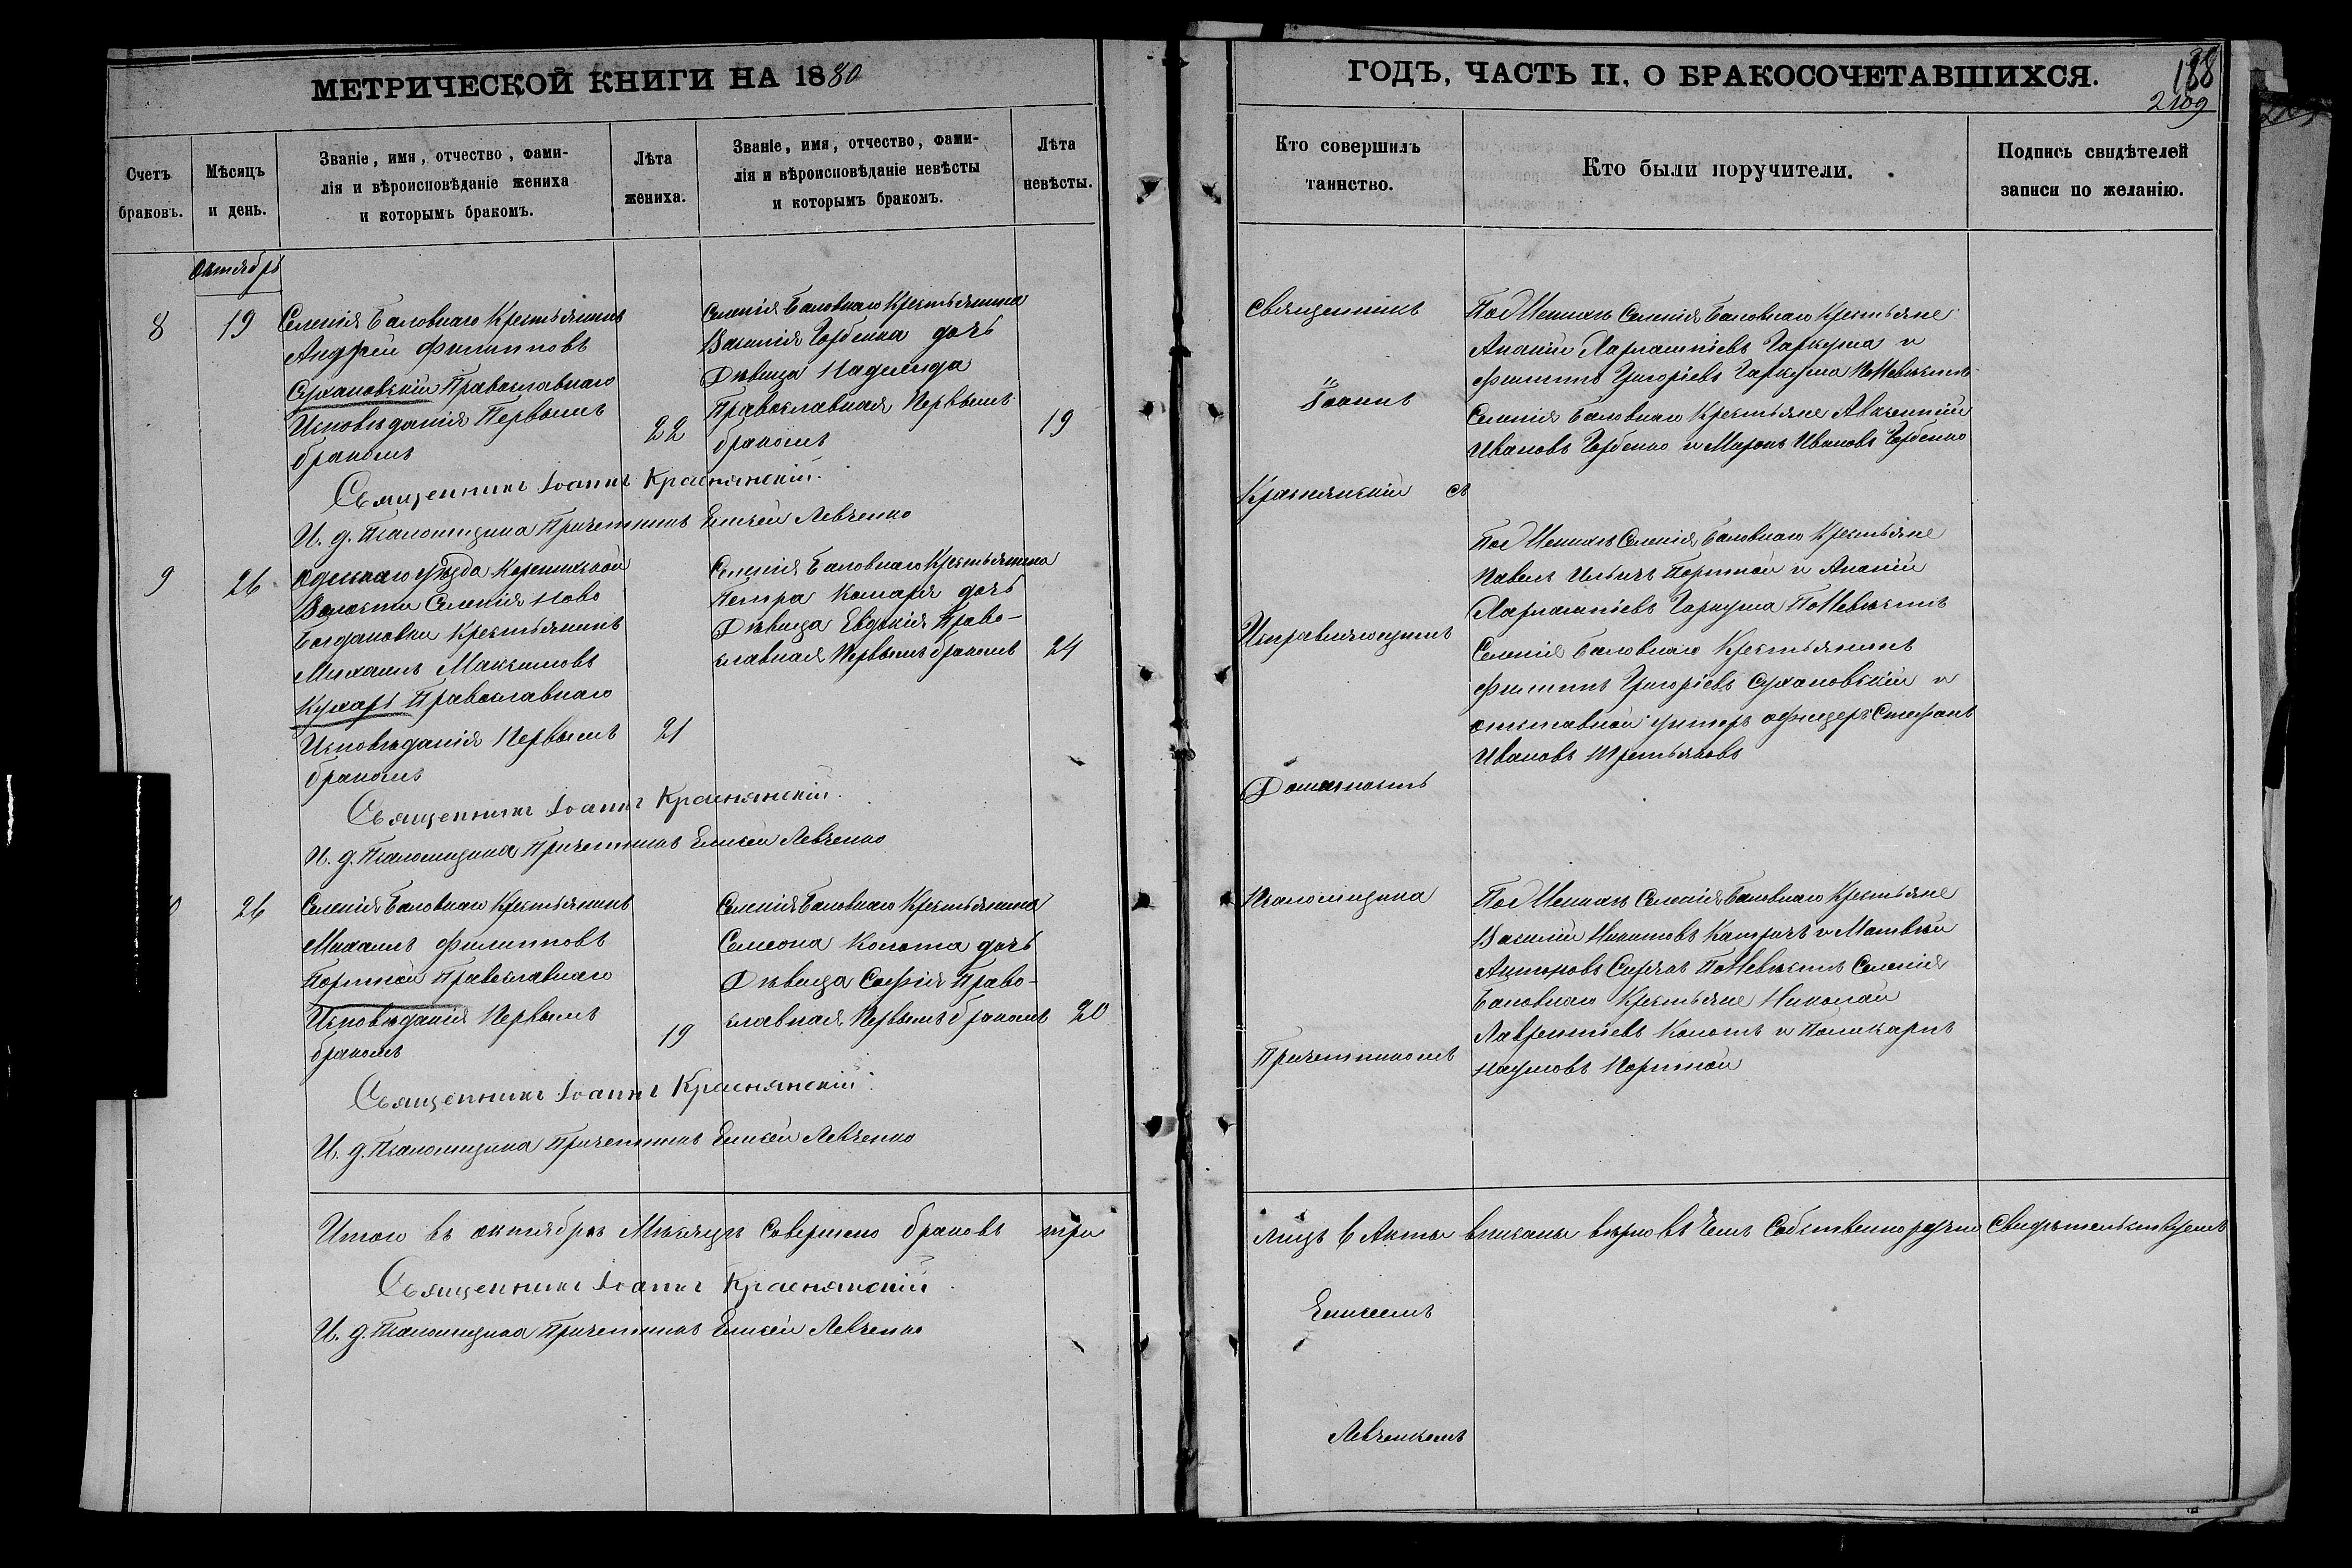 МЕТРИЧЕСКОЙ КНИГИ НА 1880
Счетъ браковъ.
Мѣсяцъ и день.
Званіе, имя, отчество, фами-
лія и вѣроисповѣданіе жениха
и которымъ бракомъ.
Лѣта жениха.
Званіе, имя, отчество, фами-
лія и вѣроисповѣданіе невѣсты
и которымъ бракомъ.
Лѣта невѣсты.
Октябрь
8
19
Селенія Баловнаго Крестьянинъ
Андрей Филипповъ
Сухановскій Православнаго
Исповѣданія Первымъ
бракомъ
22
Селенія Баловнаго Крестьянина
Василія Горбенка дочь
Дѣвица Надежда
Православная Первымъ
бракомъ
19
Священникъ Іоаннъ Краснянскій.
И. д. Псаломщика Причетникъ Елисей Левченко
9
26
Одескаго уѣзда
Волости Селенія Ново
Богдановки Крестьянинъ
Михаилъ Максимовъ
Кухарь Православнаго
Исповѣданія Первымъ
бракомъ
21
Селенія Баловнаго Крестьянина
Петра Комаря дочь
Дѣвица Евдокія Право-
славная Первымъ бракомъ
24
Священникъ Іоаннъ Краснянскій.
И. д. Псаломщика Причетникъ Елисей Левченко
26
Селенія Баловнаго Крестьянинъ
Михаилъ Филипповъ
Портной Православнаго
Исповѣданія Первымъ
бракомъ
19
Селенія Баловнаго Крестьянина
Симеона Колота дочь
Дѣвица Софія Право-
славная Первымъ бракомъ
20
Священникъ Іоаннъ Краснянскій.
И. д. Псаломщика Причетникъ Елисей Левченко
Итого въ октябрѣ Мѣсяцѣ Совершено браковъ три
Священникъ Іоаннъ Краснянскій.
И. д. Псаломщика Причетникъ Елисей Левченко
ГОДЪ, ЧАСТЬ II, О БРАКОСОЧЕТАВШИХСЯ.
188
Кто совершилъ
таинство.
Кто были поручители.
Подпись свидѣтелей
записи по желанію.
Священникъ
Іоаннъ
Краснянскій съ
Исправляющимъ
Должность
Псаломщика
Причетникомъ
По Женихѣ Селенія Баловнаго Крестьяне
Ананій Харлампіевъ Гаркуша и
Филиппъ Григоріевъ Гаркуша По Невѣстѣ
Селенія Баловнаго Крестьяне Авксентій
Ивановъ Горбенко и Миронъ Ивановъ Горбенко
По Женихѣ Селенія Баловнаго Крестьяне
Павелъ Ильичъ Портной и Ананій
Харлампіевъ Гаркуша По Невѣстѣ
Селенія Баловнаго Крестьянинъ
Филиппъ Григоріевъ Сухановскій и
отставной унтеръ офицеръ Стефанъ
Ивановъ Третьяковъ
По Женихѣ Селенія Баловнаго Крестьяне
Василій Никитовъ и Матвѣй
По Невѣстѣ Селенія
Баловнаго Крестьяне Николай
Лаврентіевъ Колотъ и Поликарпъ
Наумовъ Портной
лицъ 6 Акты вписаны вѣрно въ чемъ Собственноручно Свидѣтельствуемъ
Елисеемъ
Левченкомъ